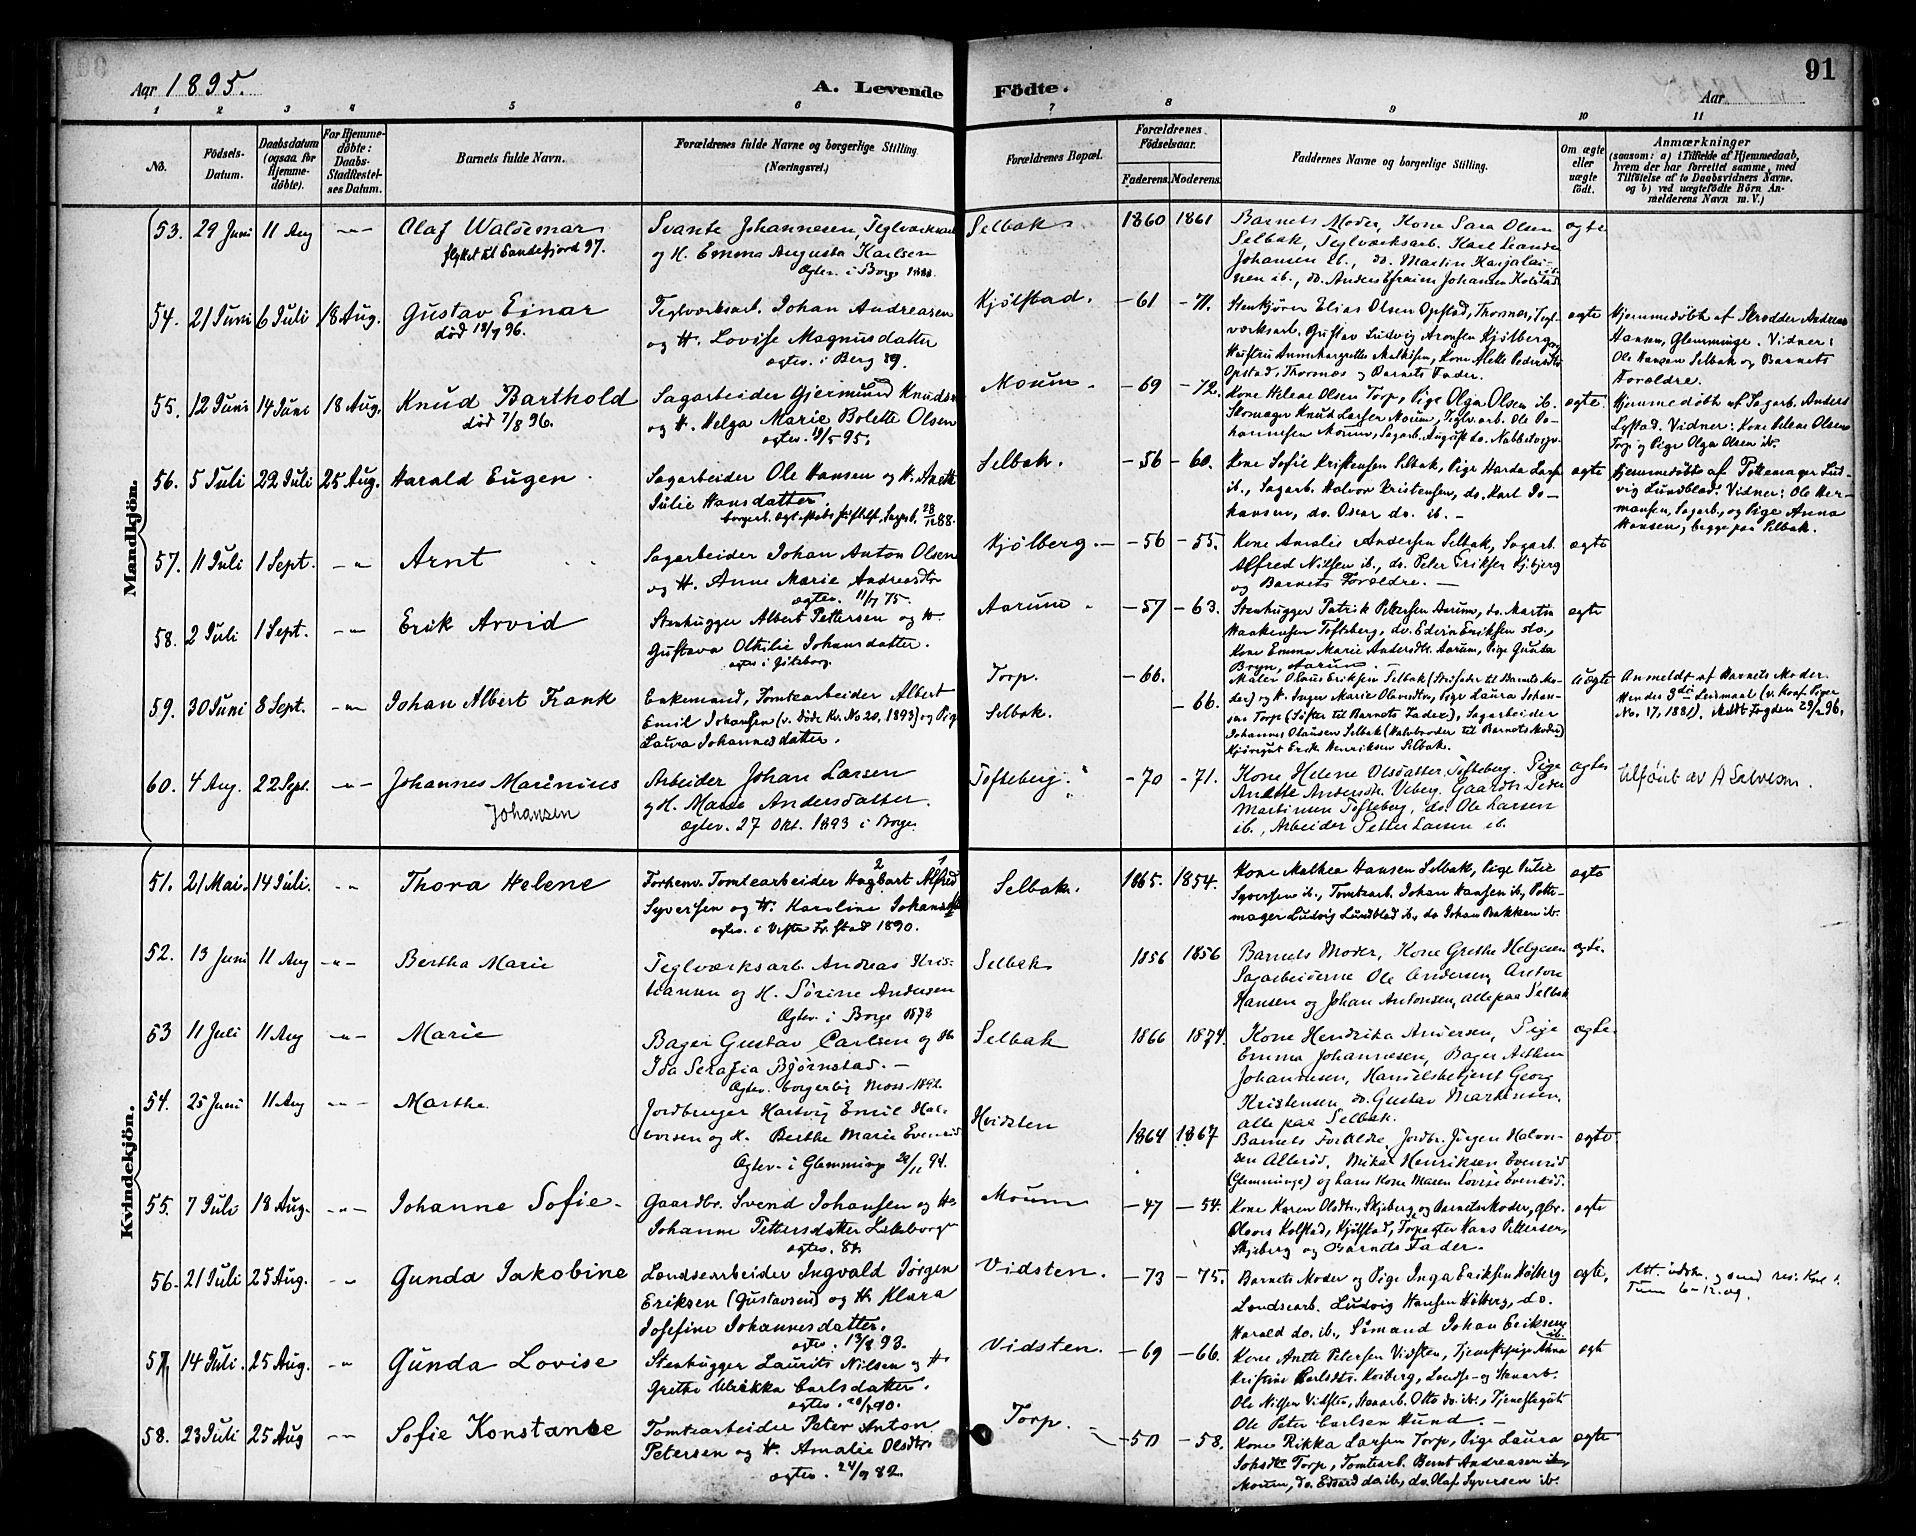 Aar 1895.
A. Levende Fødte.
91
Aar
1 2 3 4 5 6 7 8 9 10 11
No.
Fødsels-Datum.
Daabsdatum (ogsaa for Hjemme-døbte).
For Hjemme-døbte: Daabs-Stadfæstel-ses Datum.
Barnets fulde Navn.
Forældrenes fulde Navne og borgerlige Stilling. (Næringsvei.)
Forældrenes Bopæl.
Forældrenes Fødselsaar.
Faderens. Moderens.
Faddernes Navne og borgerlige Stilling.
Om ægte eller uægte født.
Anmærkninger
(saasom: a) i Tilfælde af Hjemmedaab, hvem der har forrettet samme, med Tilføielse af to Daabsvidners Navne. og b) ved uægtefødte Børn An-melderens Navn m. V.)
Mandkjøn.
53. 29 Juni 11 Aug -"- Olaf Waldemar
flyttet til Sandefjord 97.
Svante Johannesen, Teglværksarb
og H. Emma Augusta Karlsen
Ægtev. i Borge 1888.
Selbak 1860 1861
Barnets Moder, Kone Sara Olsen
Selbak, Teglværksarb. Karl Leander
Johansen ib., do. Martin Karjalai-
nen ib., do. Anders Efraim Johansen Kolstad
ægte
54. 21 Juni 6 Juli 18 Aug. Gustav Einar
død 18/7 96.
Teglværksarb. Johan Andreasen
og H. Lovise Magnusdatter
ægtev. i Berg 89.
Kjølstad. -61 -71.
Stenkjører Elias Olsen Opstad, Thomæs, Tegl-
værksarb. Gustav Ludvig Aronsen Kjølberg og
Hustru Anne Margrethe Mathisen, Kone Alette Pedersdtr
Opstad, Thomæs og Barnets Fader.
ægte
Hjemmedøbt af Skrædder Andreas
Hansen, Glemminge. Vidner:
Ole Hansen Selbak og Barnets
Forældre.
55. 12 Juni 14 Juni 18 Aug. Knud Barthold
død 7/8 96.
Sagarbeider Gjermund Knudsen
og H. Helga Marie Bolette Olsen
ægtev. 19/5 95.
Moum -69 -72.
Kone Helene Olsen Torp, Pige Olga Olsen ib.
Skomager Knud Larsen Moum, Teglv.arb. Ole Jo-
hannesen Moum, Sagarb. August do. Nabbetorp
ægte.
Hjemmedøbt af Sagarb. Anders
Lystad. Vidner: Kone Helene Olsen
Torp og Pige Olga Olsen ib.
56. 5 Juli 22 Juli 25 Aug. Harald Eugen
Sagarbeider Ole Hansen og H. Anette
Julie Hansdatter.
Selbak. -56 -60.
Kone Sofie Kristensen Selbak, Pige Harda Larsen
ib., Sagarb. Halvor Kristensen, do. Karl Jo-
hansen, do. Oscar do. ib. -
ægte
Hjemmedøbt af Pottemager Lud-
vig Lundblad. Vidner: Ole Her-
mansen, Sagarb., og Pige Anna
Hansen, begge paa Selbak.
57. 11 Juli 1 Sept. -"- Arnt
Sagarbeider Johan Anton Olsen
og H. Anne Marie Andreasdtr
ægtev. 11/7 75.
Kjølberg -56 -55.
Kone Amalie Andersen Selbak, Sagarb.
Alfred Nilsen ib., do. Peter Eriksen Kjølberg
og Barnets Forældre. -
ægte
58. 2 Juli 1 Sept. -"- Erik Arvid
Stenhugger Albert Pettersen og H.
Gustava Othilie Johansdatter.
ægtev. i Gøteborg.
Aarum -57 -63.
Stenhugger Patrik Pettersen Aarum, do. Martin
Haakensen Tofteberg, do. Edvin Eriksen do.,
Kone Emma Marie Andersdtr. Aarum, Pige Gunda
Bryn, Aarum. -
ægte
59. 30 Juni 8 Sept. -"- Johan Albert Frank
Enkemand, Tomtearbeider Albert
Emil Johansen (v. Døde Kv. No 20, 1893) og Pige
Laura Johannesdatter.
Torp. -66.
Selbak. -66.
Maler Olaus Eriksen Selbak (Stifader til Barnets Mo-
der) og H. Inger Marie Olavesdtr, Pige Laura Johan-
sen Torp (Søster til Barnets Fader), Sagarbeider
Johannes Olausen Selbak (Halvbroder til Barnets Moder)
Kjøregut Erik Henriksen Selbak.
uægte
Anmeldt af Barnets Moder.
Hendes 3die Leiermaal (v. Konf. Piger
No. 17, 1881). Meldt Fogden 29/2 96.
60. 4 Aug. 22 Sept. -"- Johannes Marinius
Johansen
Arbeider Johan Larsen
og H. Marie Andersdatter.
Ægtev. 27 Okt. 1893 i Borge
Tofteberg " -70 -71.
Kone Helene Olsdatter Tofteberg. Pige
Anette Andersdtr. Viberg. Gaardbr. Peder
Martinsen Tofteberg, do. Ole Larsen
ib., Arbeider Petter Larsen ib.
ægte
Utført av A Salvesen.
Kvindekjøn.
51. 21 Mai. 14 Juli. -"- Thora Helene
Forhenv. Tomtearbeider Hagbart Alfred
Syversen og H. Karoline Johansdtr
ægtev. i Vestre Fr.stad 1890.
Selbak. 1865. 1854.
Kone Mathea Hansen Selbak, Pige Julie
Syversen ib., Tomtearb. Johan Hansen ib., Potte-
mager Ludvig Lundblad ib., do Johan Bakken ib.
ægte
52. 13 Juni 11 Aug -"- Bertha Marie
Teglværksarb. Andreas Kris-
tiansen og H. Sørine Andersen
Ægtev. i Borge 1878
Selbak 1856 1856
Barnets Moder, Kone Grethe Helgesen
Sagarbeiderne Ole Andersen, Anton
Hansen og Johan Antonsen, alle paa Selbak
ægte.
53 11 Juli 11 Aug -"- Marie
Bager Gustav Carlsen og H.
Ida Serafia Bjørnstad. -
Ægtev. borgerlig Moss 1892.
Selbak 1866 1874.
Kone Hendrika Andersen, Pige
Emma Johannesen, Bager Arthur
Johannesen, Handelsbetjent Georg
Kristensen, do. Gustav Martinsen,
alle paa Selbak.
ægte
54. 25 Juni 11 Aug -"- Marthe
Jordbruger Hartvig Emil Hal-
vorsen og H. Berthe Marie Evensrød
Ægtev. i Glemminge 29/11 94.
Hvidsten 1864 1867
Barnets Forældre, Jordbr. Jørgen Halvor-
sen Allerød, Mikal Henriksen Evensrød
(Glemminge) og hans Kone Maren Lovise Evensrød.
ægte
55. 7 Juli 18 Aug. -"- Johanne Sofie.
Gaardbr. Svend Johansen og H.
Johanne Pettersdatter Lilleborge
ægtev. 84.
Moum -47 -54.
Kone Karen Olsdtr, Skjeberg og Barnets Moder, gbr.
Olaves Kolstad, Kjølstad, Torpagter Hans Pettersen,
Skjeberg og Barnets Fader.
ægte
56. 21 Juli 25 Aug. -"- Gunda Jakobine
Londsearbeider Ingvald Jørgen
Eriksen (Gustavsen) og H. Klara
Josefine Johannesdatter.
ægtev. 13/8 93.
Vidsten. -73 -75.
Barnets Moder og Pige Inga Eriksen Holberg
Londsearb. Ludvig Hansen Holberg, do.
Harald do. ib., Sømand Johan Eriksen
ib.
ægte,
Att. udst.
57 14 Juli. 25 Aug. -"- Gunda Lovise
Stenhugger Laurits Nilsen og H.
Grethe Ulrikka Carlsdatter.
Vidsten. -69 -66.
Kone Anette Petersen Vidsten, Tjenestepige Anna
Kristine Karlsdtr. Roiberg, Londse- og Stenarb.
Ole Nilsen Vidsten, Stenarb. Otto do. ib., Tjenestegut
Ole Peter Carlsen Hund. -
ægt
58. 23 Juli 25 Aug -"- Sofie Konstance
Tomtearbeider Peter Anton
Petersen og H. Amalie Olsdtr.
ægtev. 24/9 82.
Torp. -50 -58.
Kone Rikka Larsen Torp, Pige Laura
Johsdtr Torp, Tomtearb. Bernt Andreasen
Moum, do. Edvard do ib., do. Olaf Syversen ib.
ægte